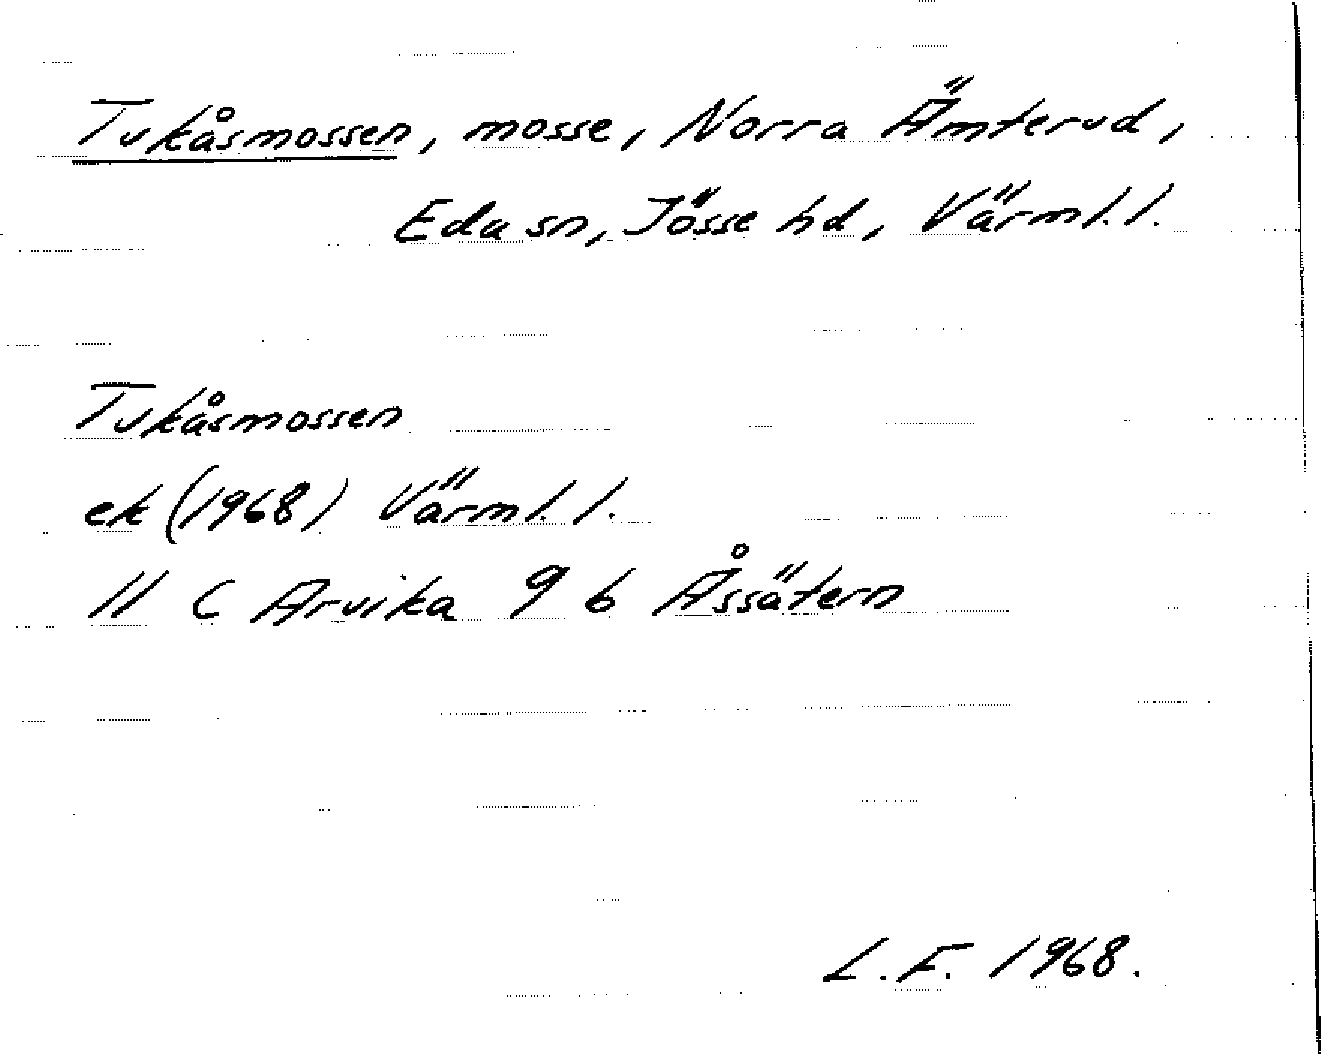 Tukåsmossen, mosse, Norra Ämterud,
Eda sn, Jösse hd, Värml. l.
Tukåsmossen
ek (1968) Värml. l.
11 C Arvika 9 b Åssätern
L. F. 1968.